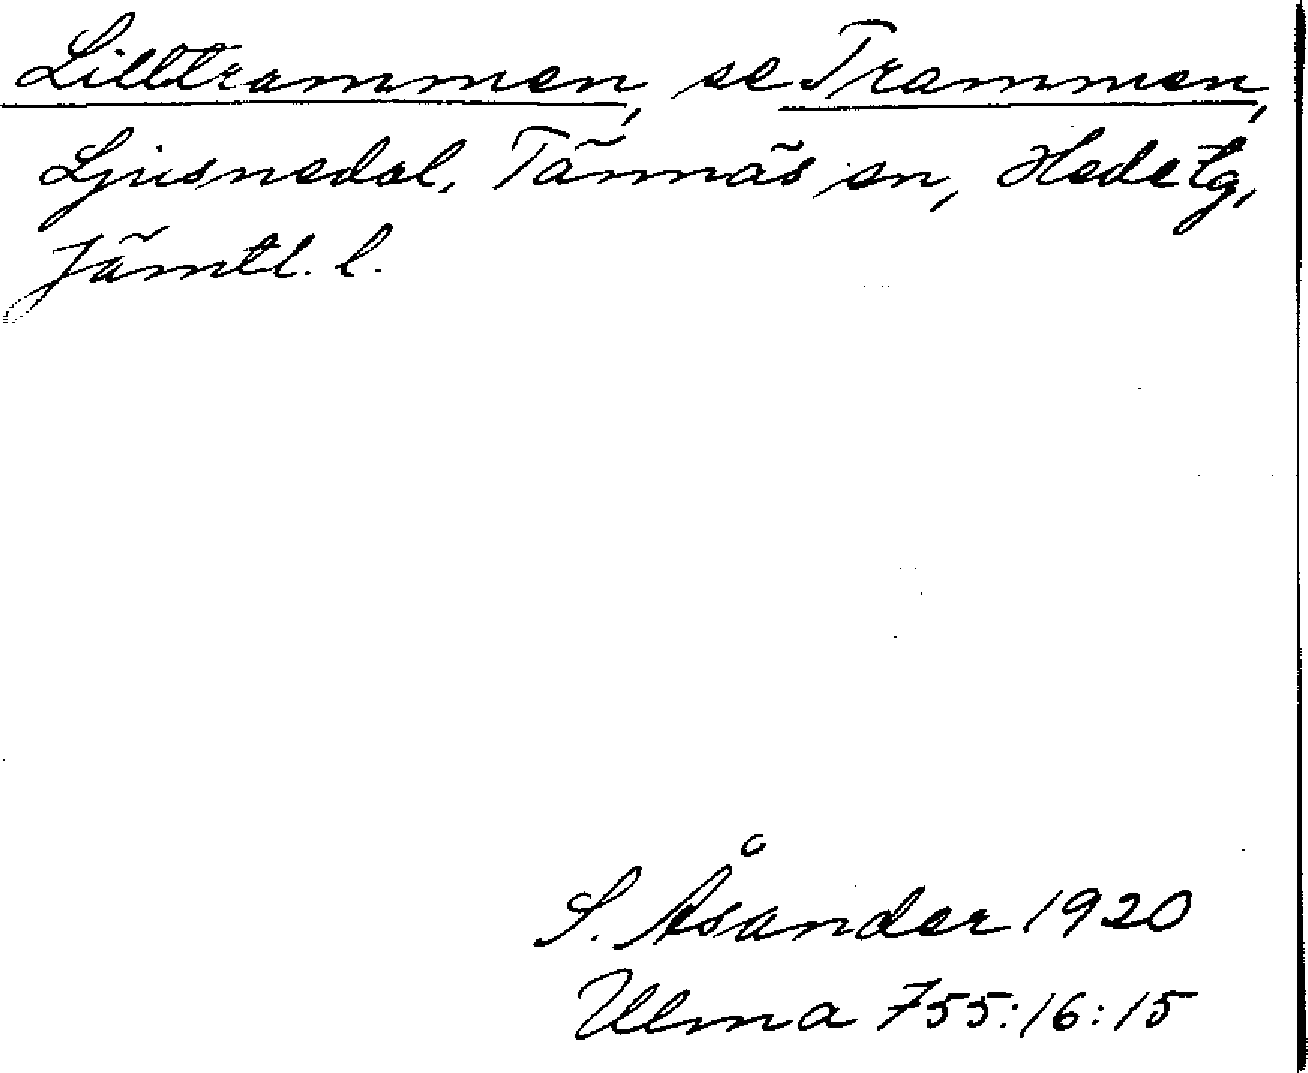 Lilltrammen, se Trammen,
Ljusnedal, Tännäs sn, Hede tg,
Jämtl. l.
S. Åsander 1920
Ulma 755:16:15